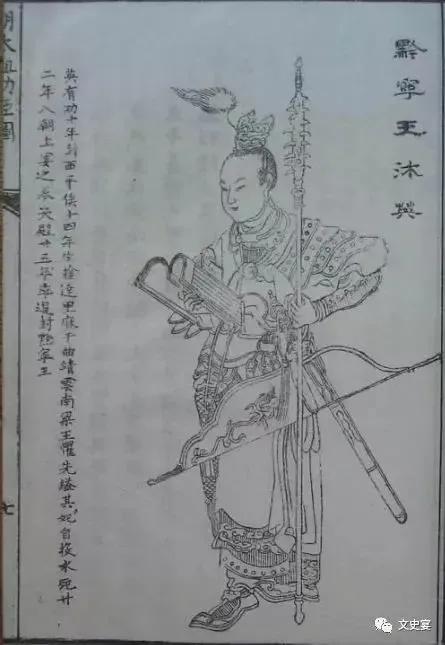 黔寧王沐英
英有功十年封西平侯十四年生擒達里麻于曲靖雲南梁王懼先縊其妃自投水死廿
二年入朝上宴之奉天殿廿五年卒追封黔寧王
明太祖功臣圖
七
文史宴